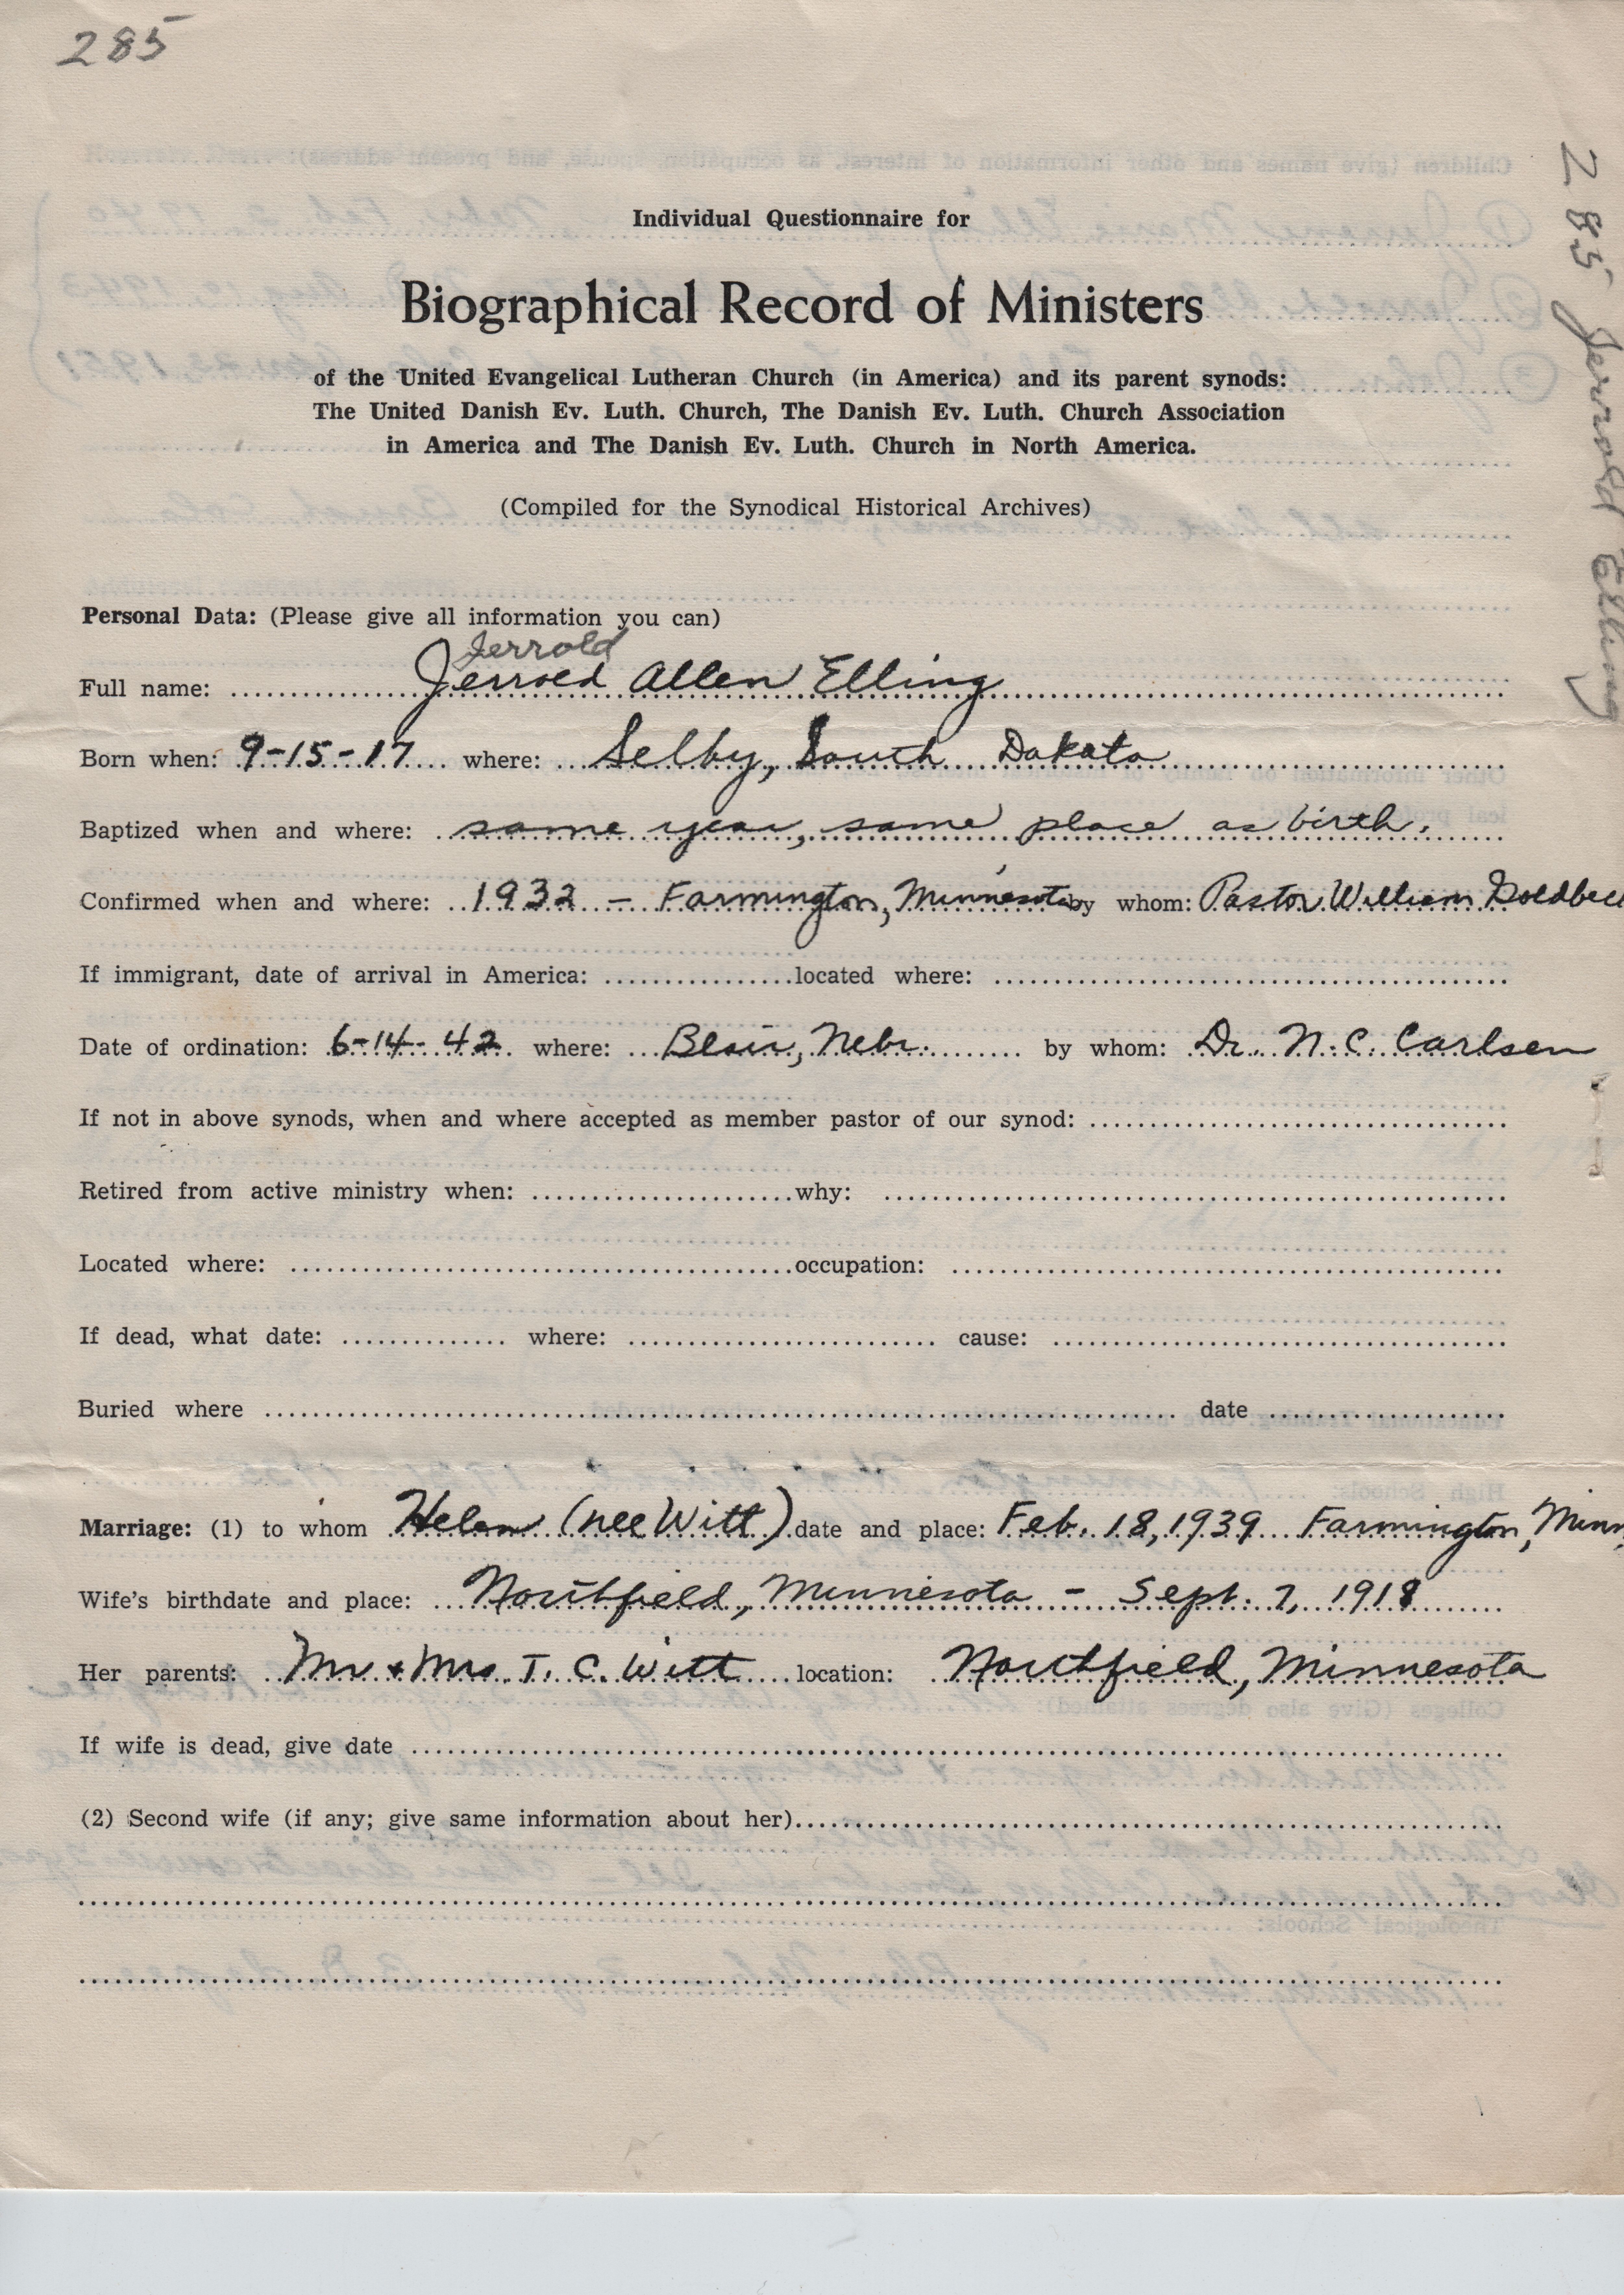 285
285 Jerrold Elling
Individual Questionnaire for
Biographical Record of Ministers
of the United Evangelical Lutheran Church (in America) and its parent synods:
The United Danish Ev. Luth. Church, The Danish Ev. Luth. Church Association
in America and The Danish Ev. Luth. Church in North America.
(Compiled for the Synodical Historical Archives)
Personal Data: (Please give all information you can)
Jerrold
Full name: Jerrold Allen Elling
Born when: 9-15-17 where: Selby, South Dakota
Baptized when and where: same year, same place as birth.
Confirmed when and where: 1932 - Farmington, Minnesota by whom: Pastor William Goldbeck
If immigrant, date of arrival in America: located where:
Date of ordination: 6-14-42 where: Blair, Nebr. by whom: Dr. N. C. Carlsen
If not in above synods, when and where accepted as member pastor of our synod:
Retired from active ministry when: why:
Located where: occupation:
If dead, what date: where: cause:
Buried where date
Marriage: (1) to whom Helen (nee Witt) date and place: Feb. 18, 1939 Farmington, Minn.
Wife's birthdate and place: Northfield, Minnesota - Sept. 7, 1918
Her parents: Mr & Mrs. T. C. Witt location: Northfield, Minnesota
If wife is dead, give date
(2) Second wife (if any; give same information about her)